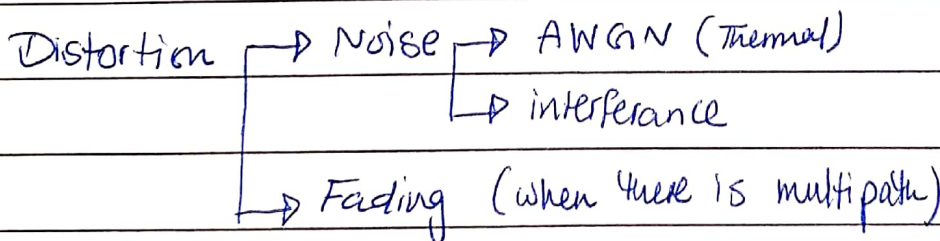 Distortion → Noise → AWGN (Thermal)
→ interferance
→ Fading (when there is multipath)